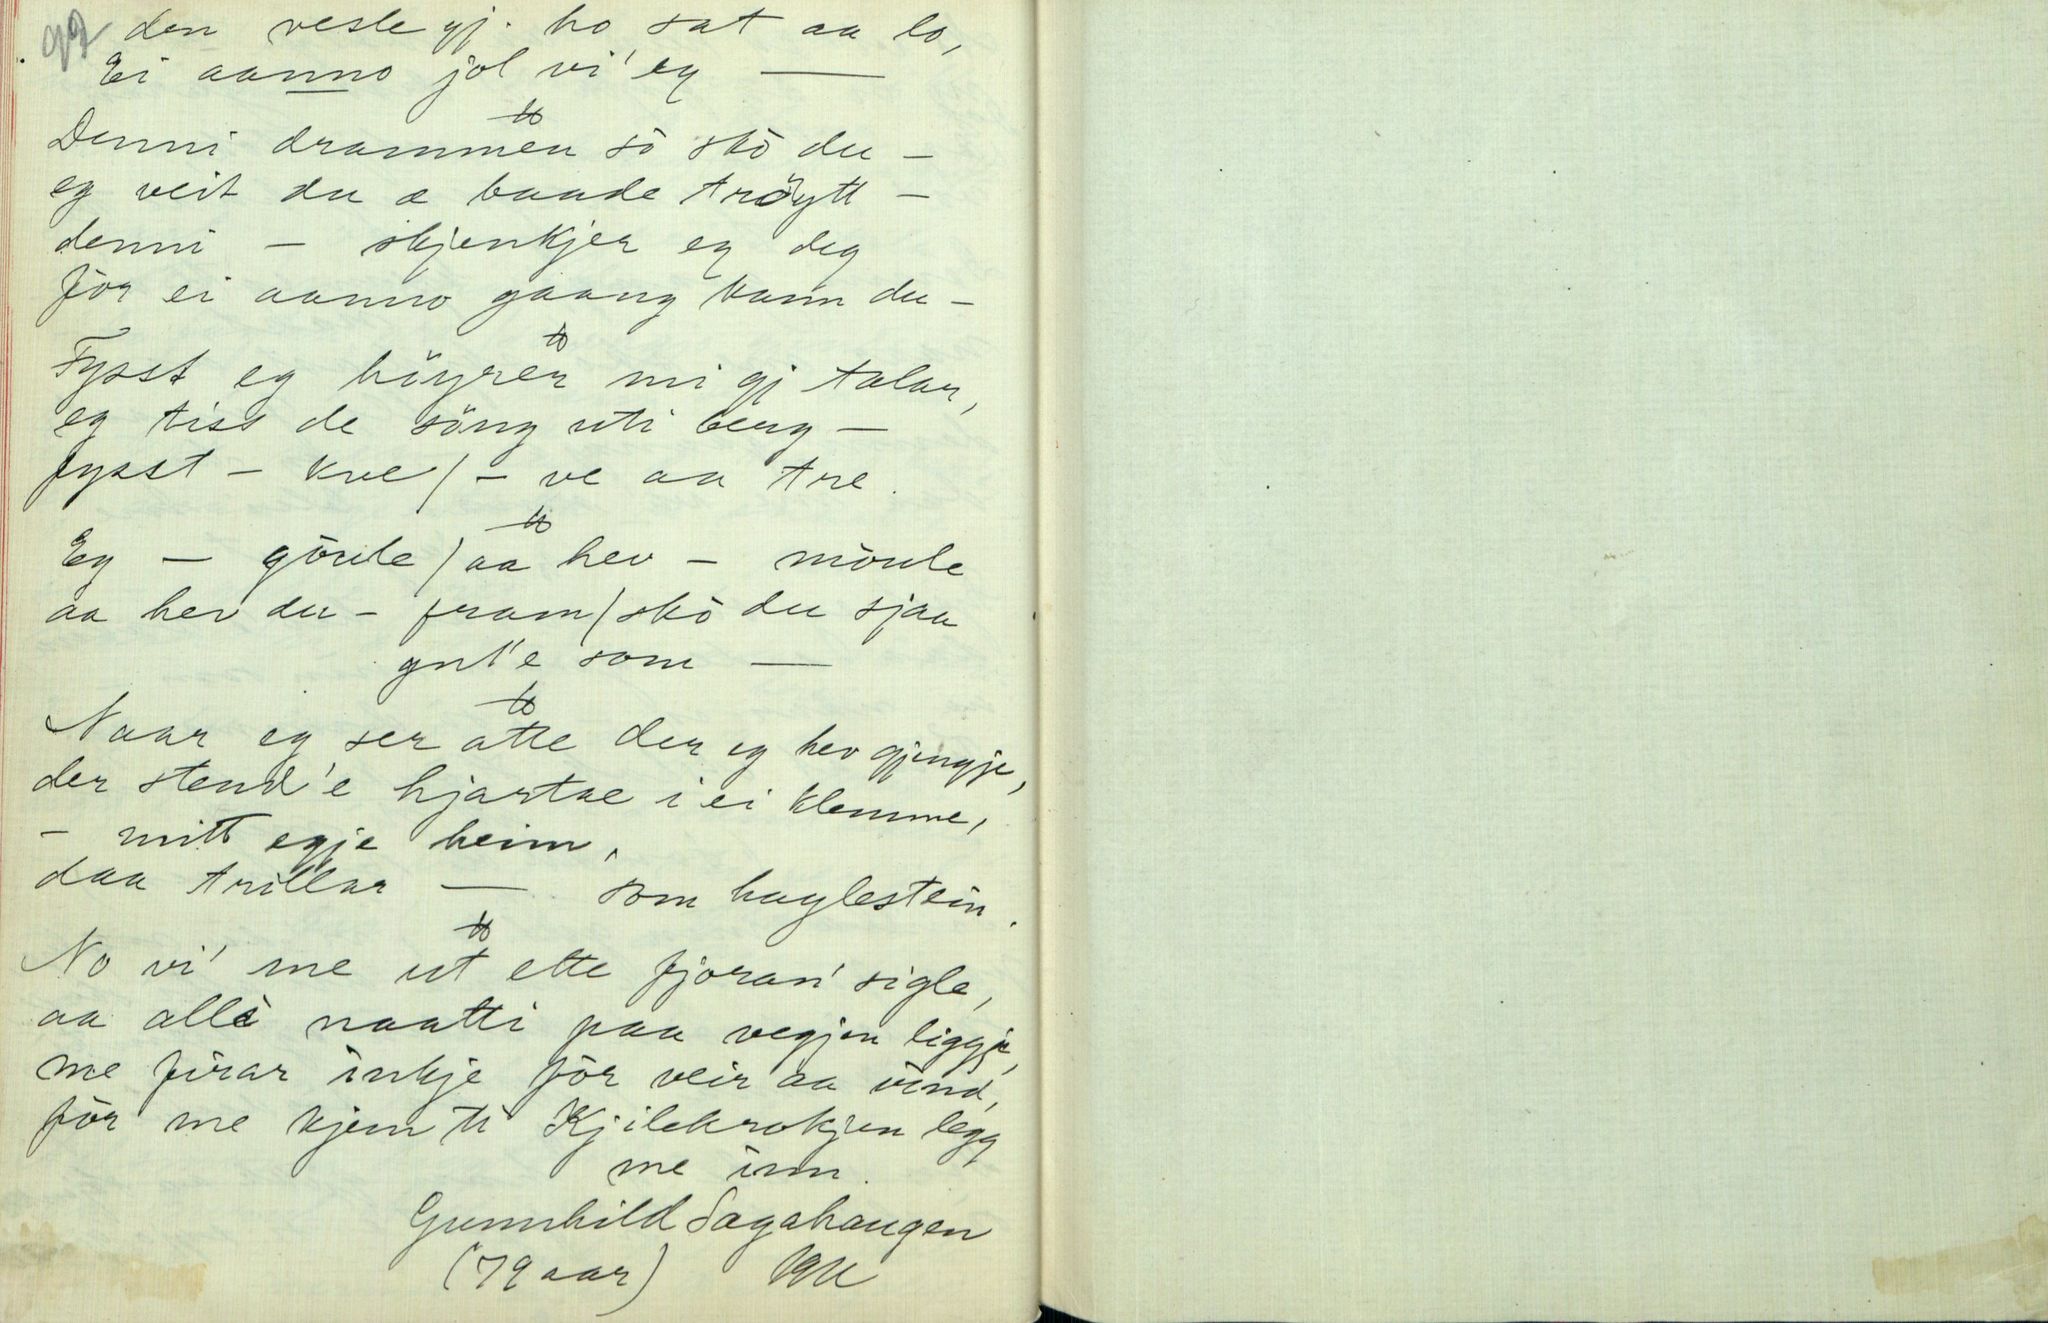 99 den vesle gj. ho sat aa lo,
Ei aanno jol vi' eg —
Denni drammen sò skò du –
eg veit du æ baade tröytt –
denni – skjenkjer eg deg
fòr ei aanno gaang kann du –
Fysst eg höyrer mi gj talar,
eg tiss de söng uti berg –
fysst – kve / – ve aa tre.
Eg – gòule / aa hev – mòule
aa hev du – fram / skò du sjaa
gut'e som —
Naar eg ser atte der eg hev gjengje,
der stend'e hjartae i ei klemme,
– mitt egje heim,
daa trillar — som haglestein.
No vi' me ut ette fjoran' sigle,
aa alli naatti paa vegjen liggje,
me firar inkje fòr veir aa vind,
fòr me kjem ti Kjilekrokjen legg
me inn.
Gunnhild Sagahaugen
(79 aar) 1911